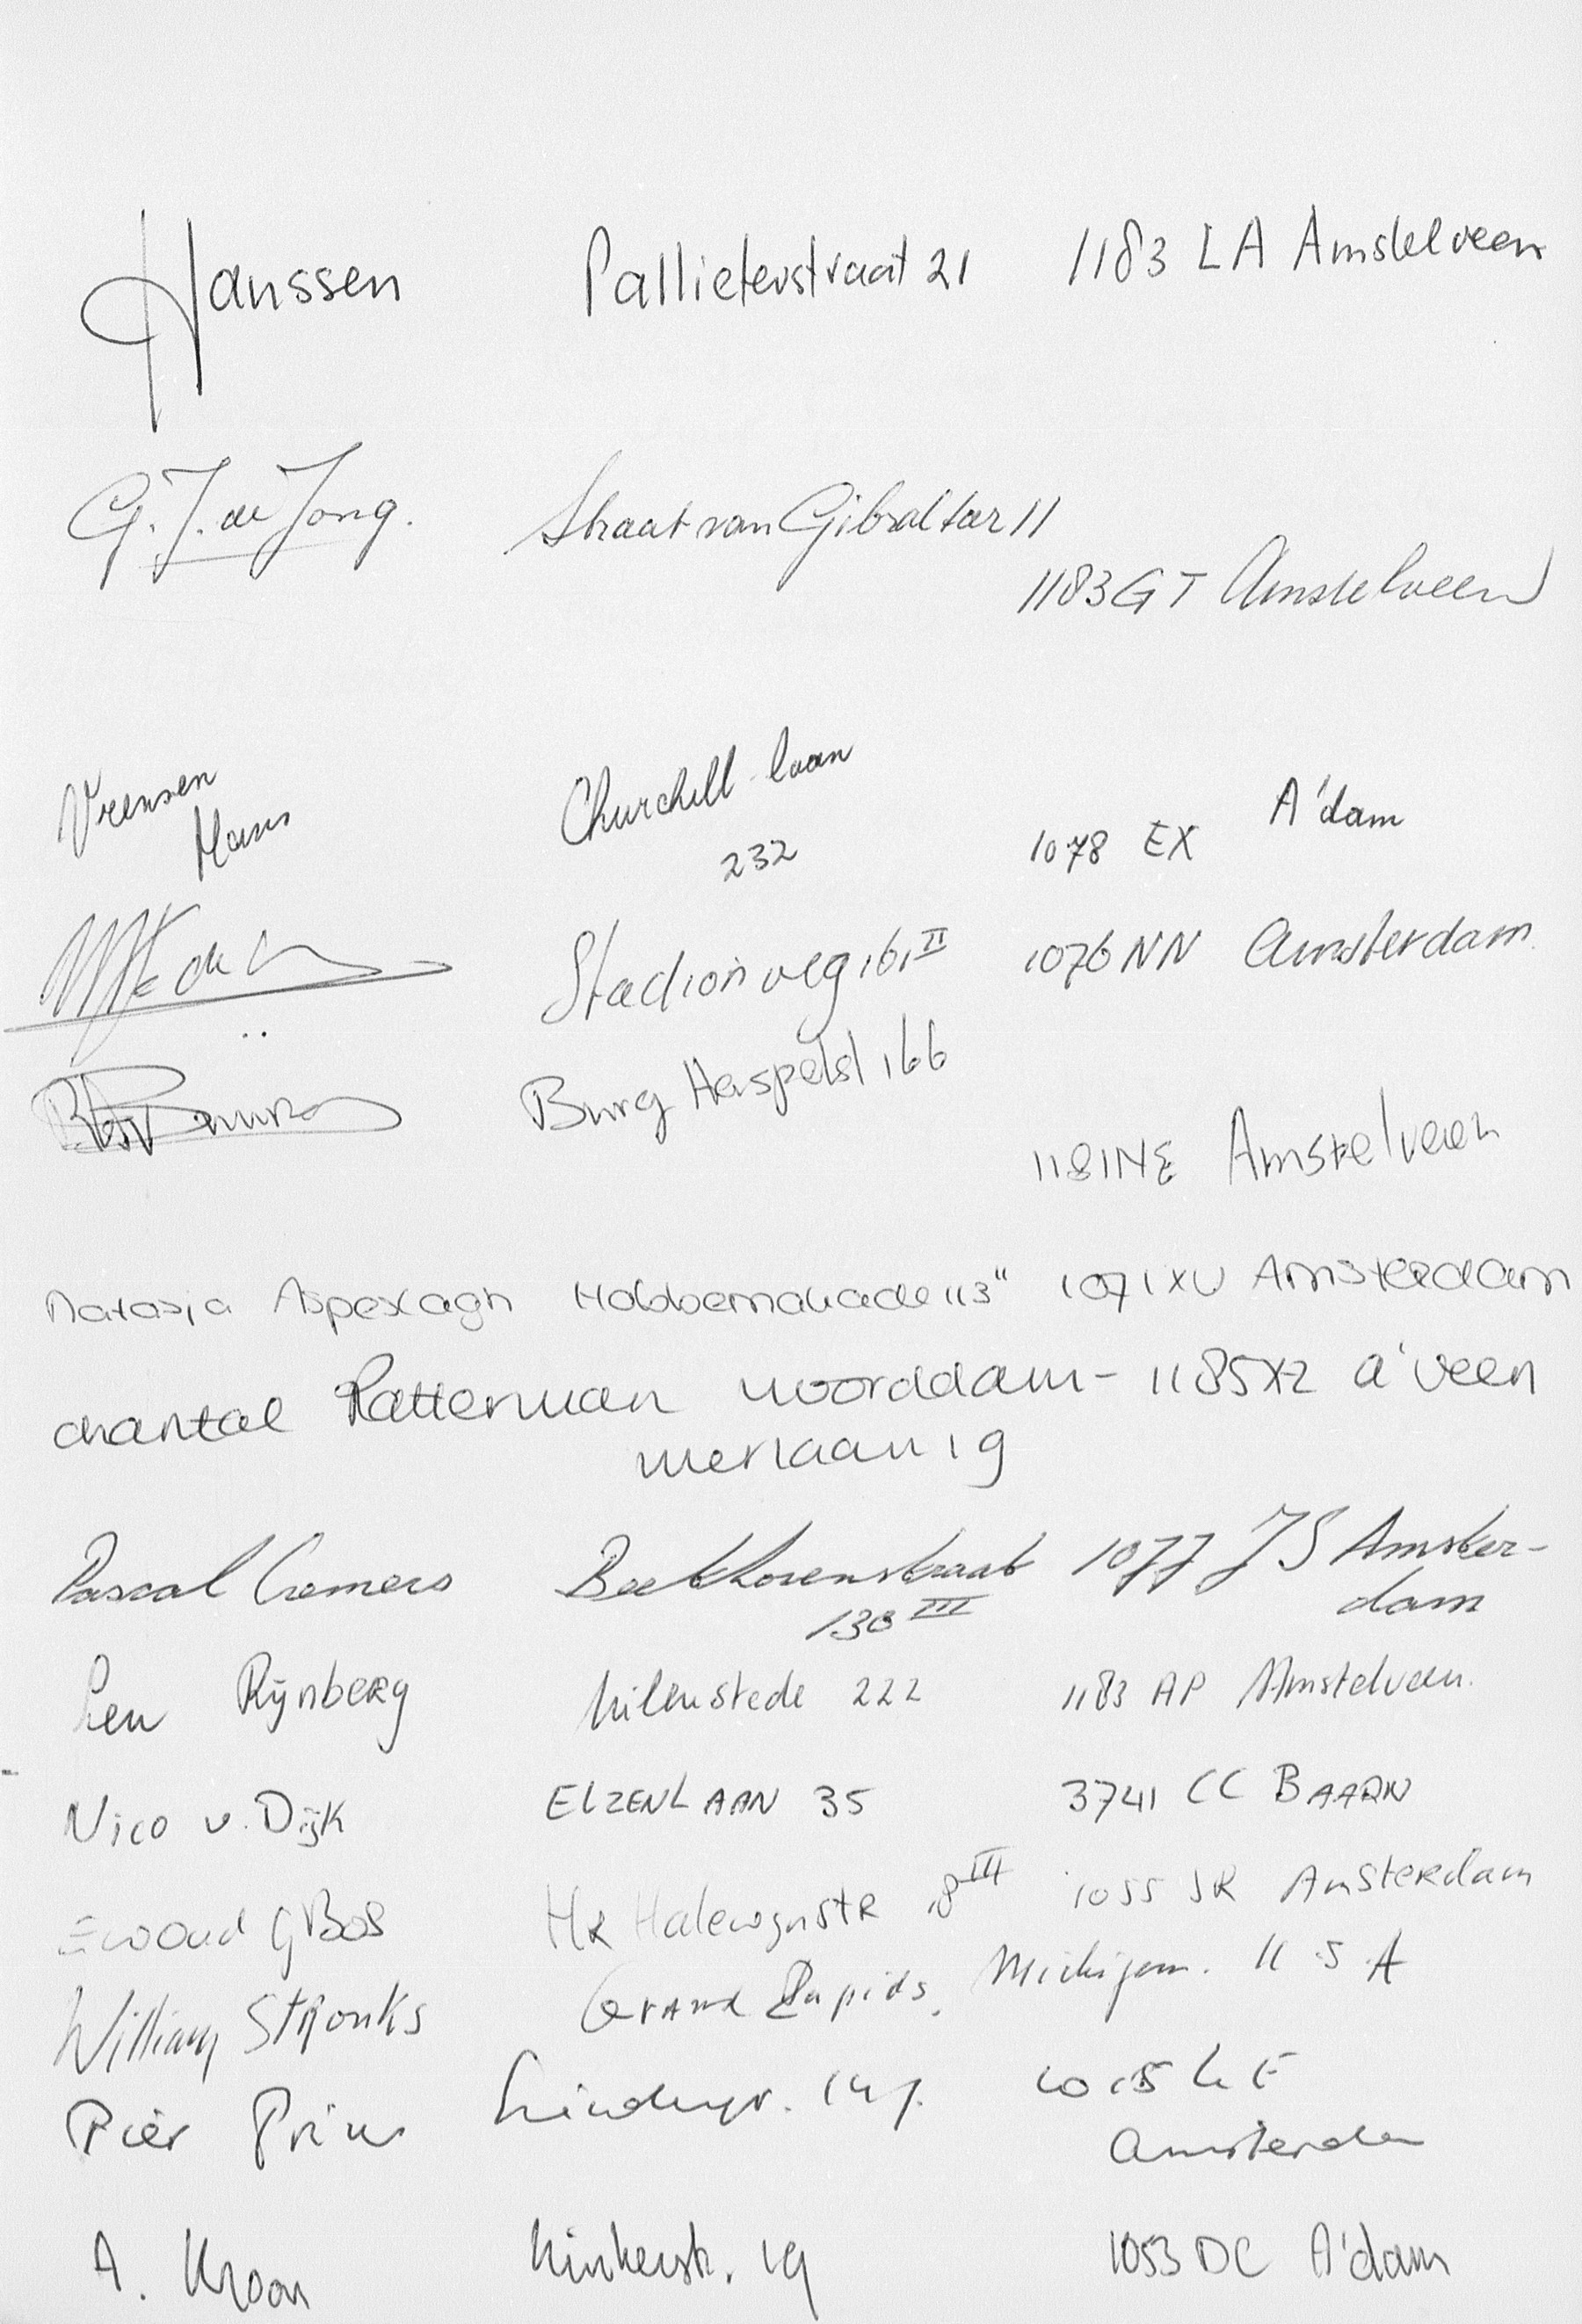 Janssen Pallieterstraat 21 1183 LA Amstelveen
G. J. de Jong. Straat van Gibraltar 11
1183 GT Amstelveen
Vrensen Churchill-laan
Hans 232 1078 EX A'dam
Stadionweg 161 II 1076 NN Amsterdam
Burg Haspelsl 166
1181NE Amstelveen
Natasja Hobbemakade 113" 1071XV Amsterdam
chantal Ratterman Noorddam- 1185XZ a'veen
merlaan 19
Pascal Cremers Beethovenstraat 1077 JS Amster-
130 III dam
Leu Rijnberg Uilenstede 222 1183 AP Amstelveen.
Nico v. Dijk ElZENLAAN 35 3741 CC BAARN
Ewoud G Bos Hr Halewijnstr 18 III 1055 SR Amsterdam
William Stronks Grand Rapids, Michigan. U S A
Pier Prins Lindengr. 1015
Amsterdam
A. Kroon Kinkerstr. 19 1053 DC A'dam